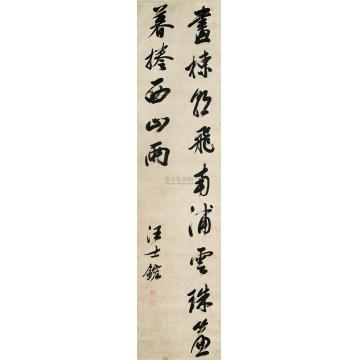 畫棟朝飛南浦雲珠簾
暮捲西山雨
汪士鋐